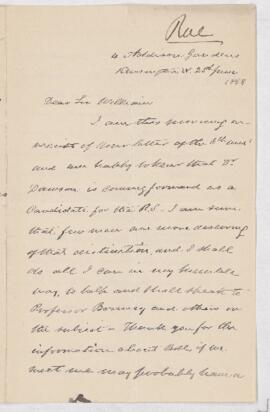 Rae
4 Addison Gardens
Kensington W. 23d June
1888
Dear Sir William
I am this morning in
receipt of your letter of the 8th inst
and am happy to hear that Dr.
Dawson is coming forward as a
Candidate for the R.S. I am sure
that few men are more deserving
of that distinction, and I shall
do all I can in my humble
way, to help and shall speak to
Professor Bonney and others on
the subject. Thank you for the
information about Bell, if we
meet we may probably have a